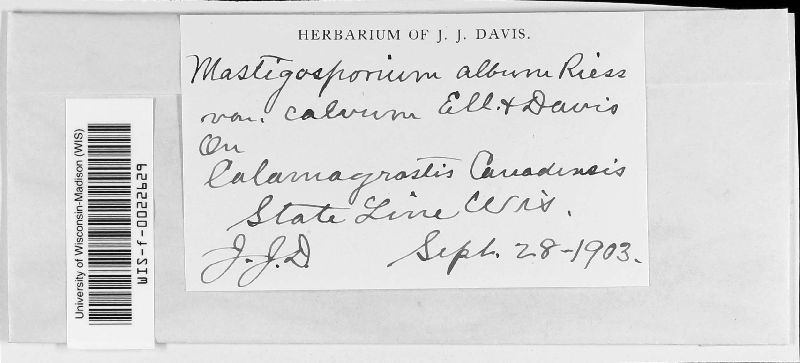 HERBARIUM OF J. J. DAVIS.
Mastigosporium album Riess
var. calvum Ell. & Davis
On
Calamagrostis Canadensis
State Line Wis.
J. J. D. Sept. 28-1903.
University of Wisconsin-Madison (WIS)
WIS-f-0022629